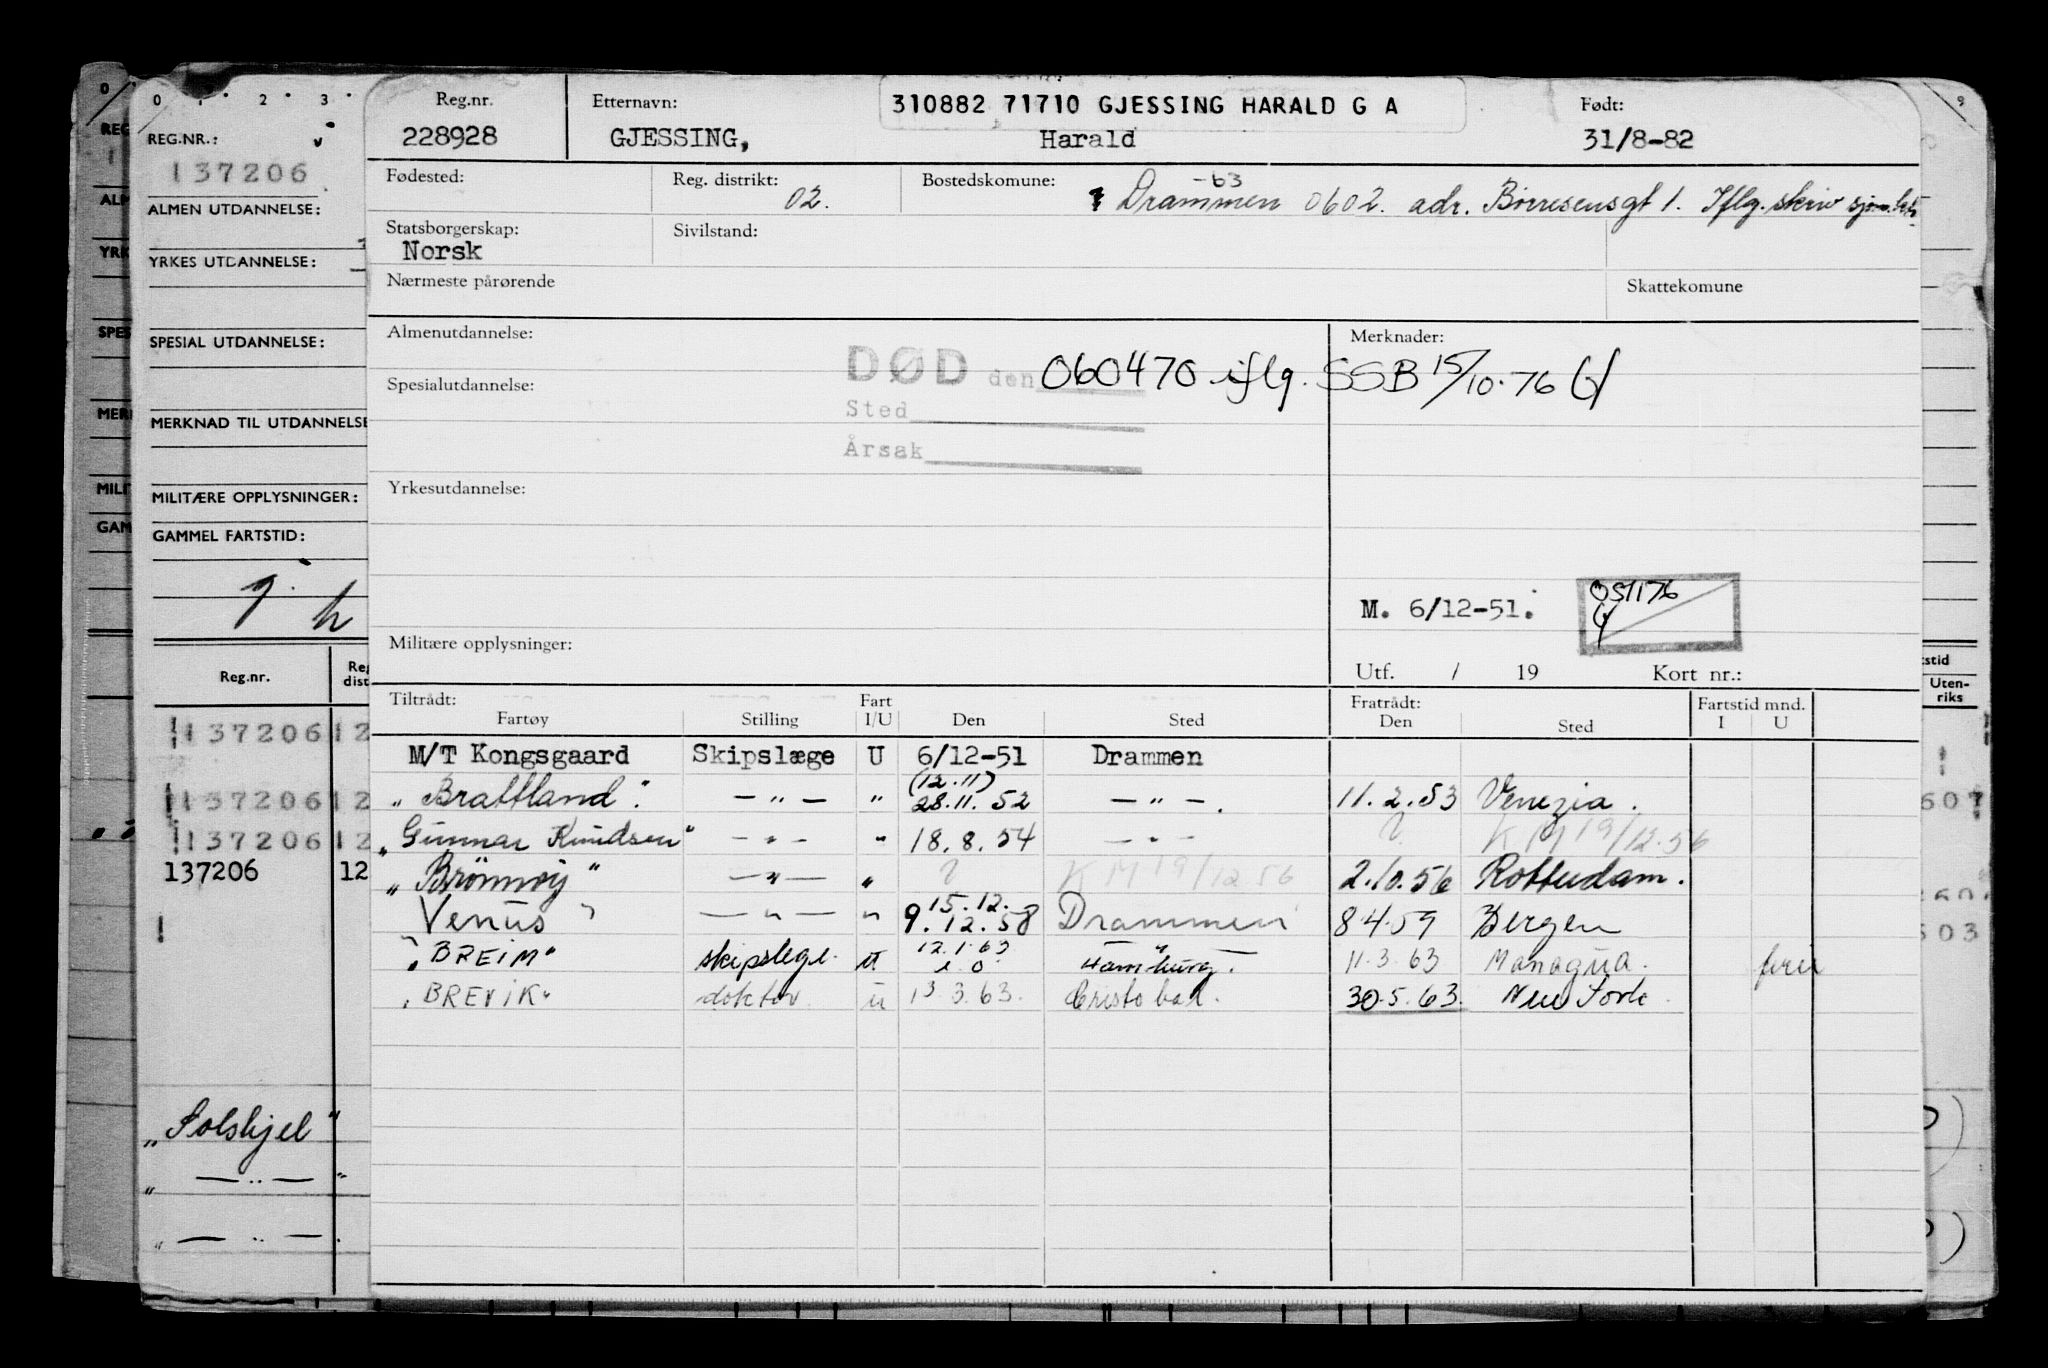 Reg.nr. Etternavn: 310882 71710 GJESSING HARALD G A Født:
228928 GJESSING, Harald 31/8-82
Fødested: Reg. distrikt: 02. Bostedskomune: -63
Drammen 0602. adr. Börresensgt 1. Iflg. skriv
Statsborgerskap: Norsk Sivilstand:
Nærmeste pårørende Skattekomune
Almenutdannelse: Merknader:
DØD den 060470 iflg. SSB 15/10-76
Spesialutdannelse:
Sted
Årsak
Yrkesutdannelse:
M. 6/12-51. 051176
Militære opplysninger:
Utf. / 19 Kort nr.:
Tiltrådt: Fart Fratrådt: Fartstid mnd.
Fartøy Stilling I/U Den Sted Den Sted I U
M/T Kongsgaard Skipslæge U 6/12-51 Drammen
"Brattland". — " — " (12.11) 28.11.52 — " —. 11.2.53 Venezia.
"Gunnar Knudsen" — " — " 18.8.54 — " — ? KM 19/12.56
"Brönnöy" — " — " ? KM 19/12 56 2.10.56 Rotterdam.
Venus" — " — " 15.12. 9.12.58 Drammen 8.4.59 Bergen
"BREIM" skipslege. U 12.1.63 Hamburg. 11.3.63 Managua.
"BREVIK" doktor u 13.3.63. Cristobal. 30.5.63. New York.
0 1 2 3
REG.NR.:
137206
ALMEN UTDANNELSE:
YRKES UTDANNELSE:
SPESIAL UTDANNELSE:
MERKNAD TIL UTDANNELSE
MILITÆRE OPPLYSNINGER:
GAMMEL FARTSTID:
Reg.nr. Reg dist
137206 12
137206 12
137206 12
137206 12
"Solskjel"
" — .. — "
" — .. — "
0
REG
ALM
YRK
SPES
MERK
MILIT
GAM
9
tstid
Uten-
riks
607
503